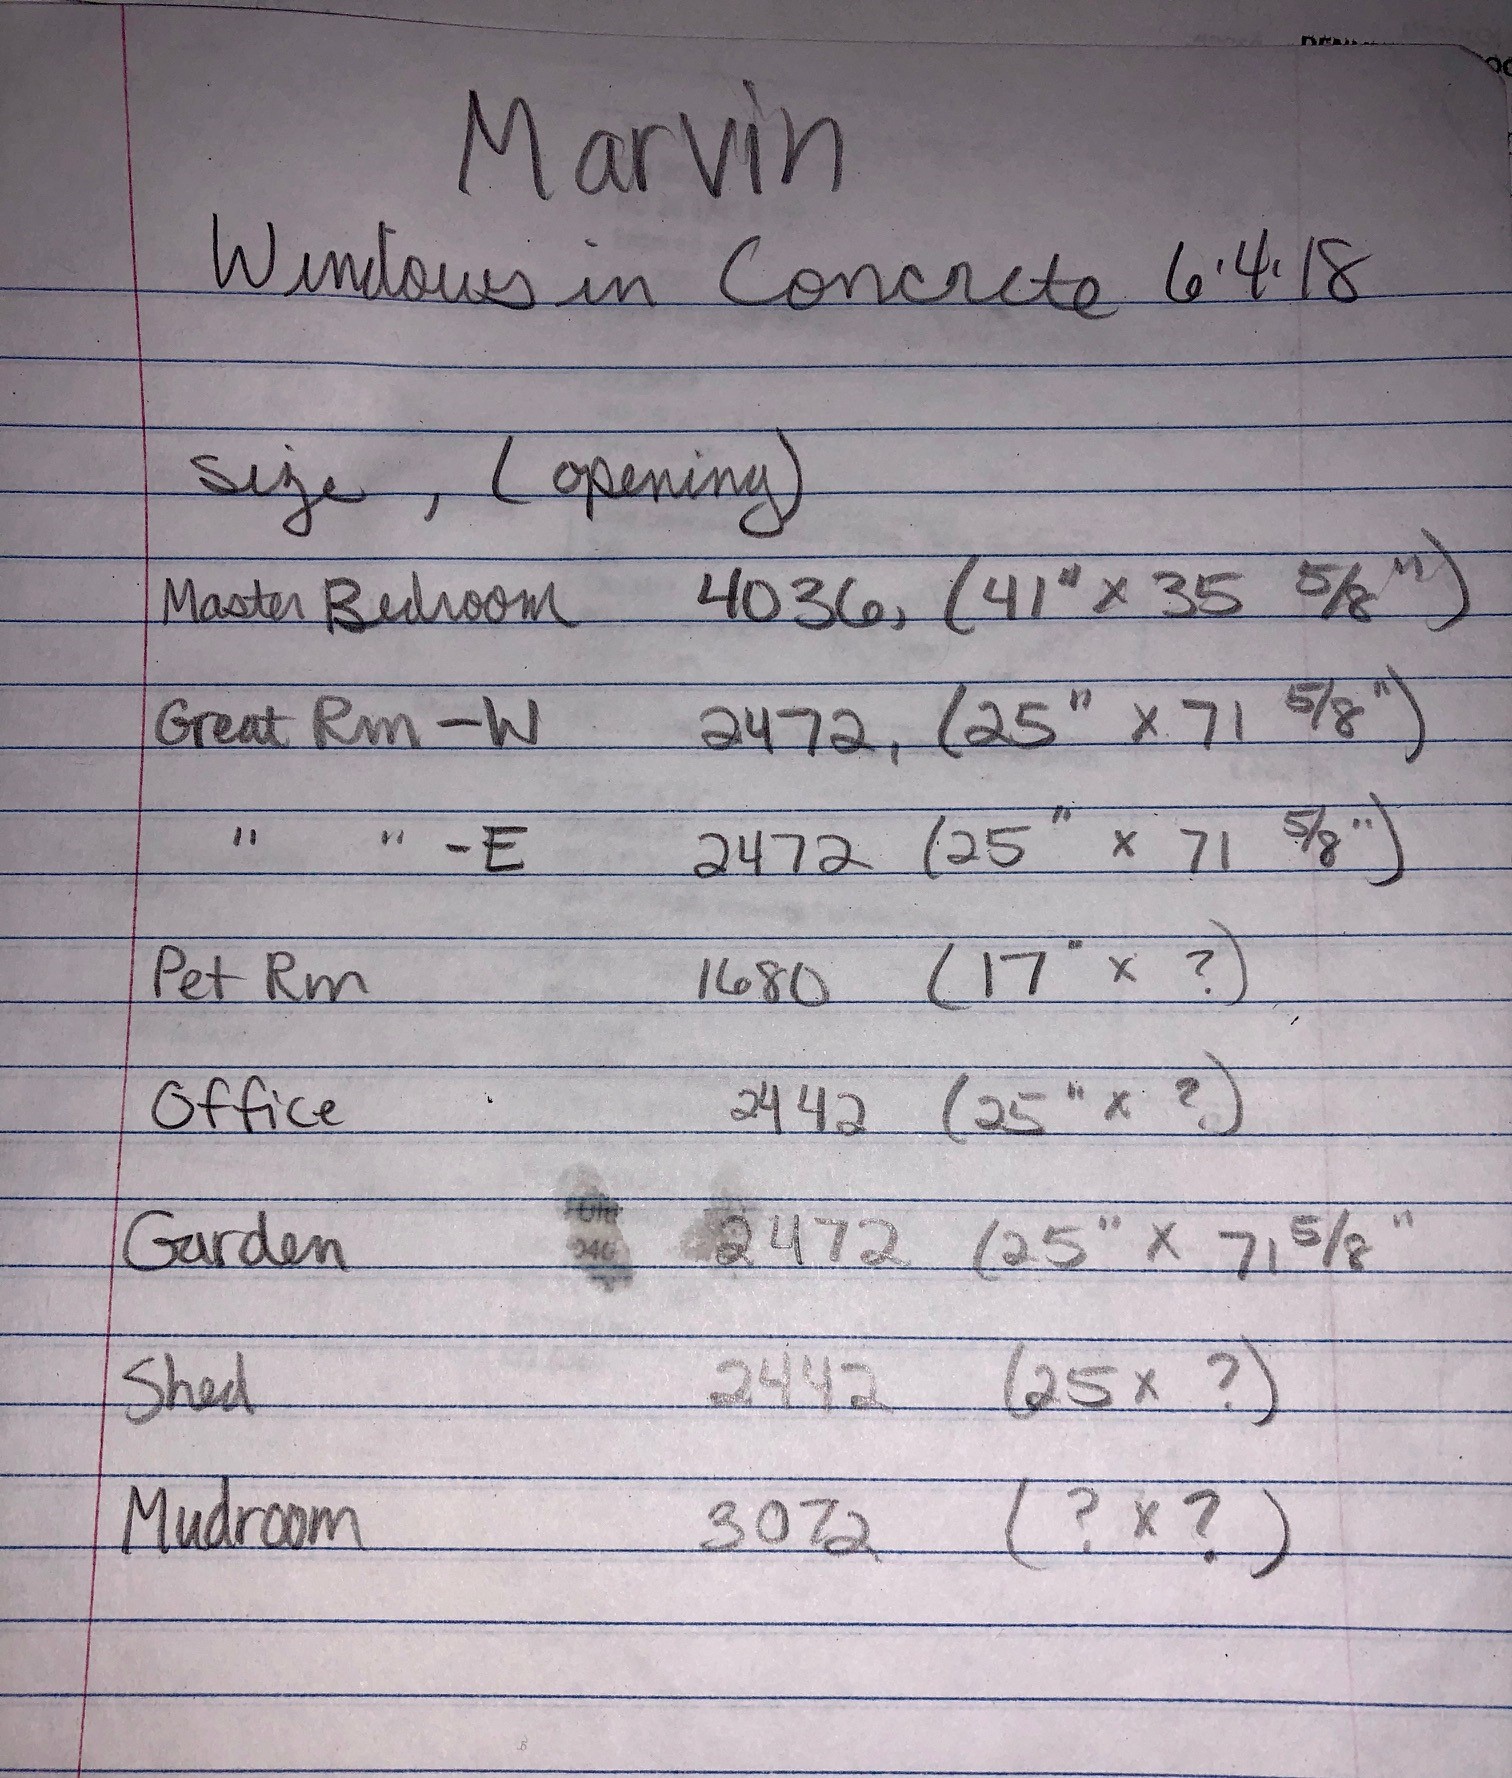 Marvin
Windows in Concrete 6.4.18
Size, (opening)
Master Bedroom 4036, (41" x 35 5/8")
Great Rm - W 2472, (25" x 71 5/8")
" " - E 2472 (25" x 71 5/8")
Pet Rm 1680 (17" x ?)
Office 2442 (25" x ?)
Garden 2472 (25" x 71 5/8"
Shed 2442 (25 x ?)
Mudroom 3072 (? x ?)